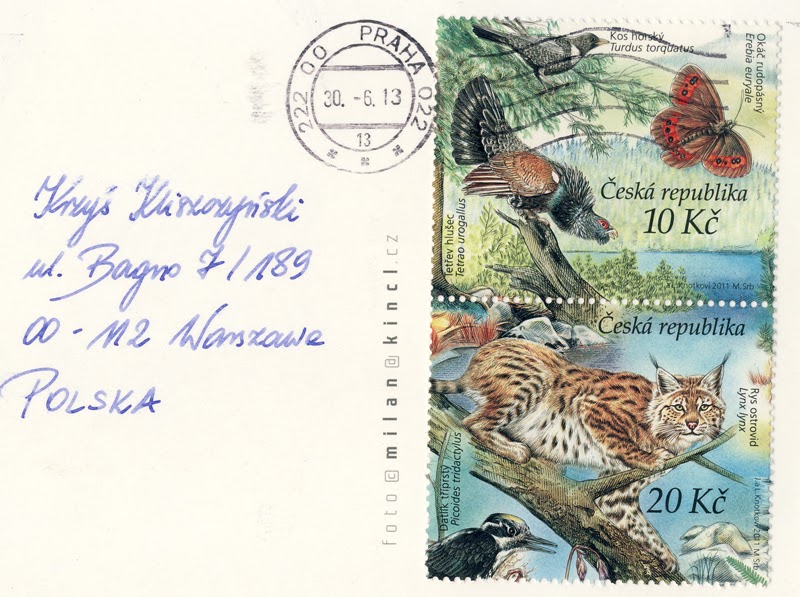 222 00 PRAHA 022
30. -6. 13
13
Krzyś Kliszczyński
ul. Bagno 7/189
00-112 Warszawa
POLSKA
foto@milan@kincl.cz
Kos horský
Turdus torquatus
Okáč rudopásný
Erebia euryale
Česká republika
10 Kč
Tetřev hlušec
Tetrao urogallus
L. Knotkovi 2011 M. Srb
Česká republika
Rys ostrovid
Lynx lynx
20 Kč
Datlík tříprstý
Picoides tridactylus
J a L. Knotkovi 2011 M. Srb